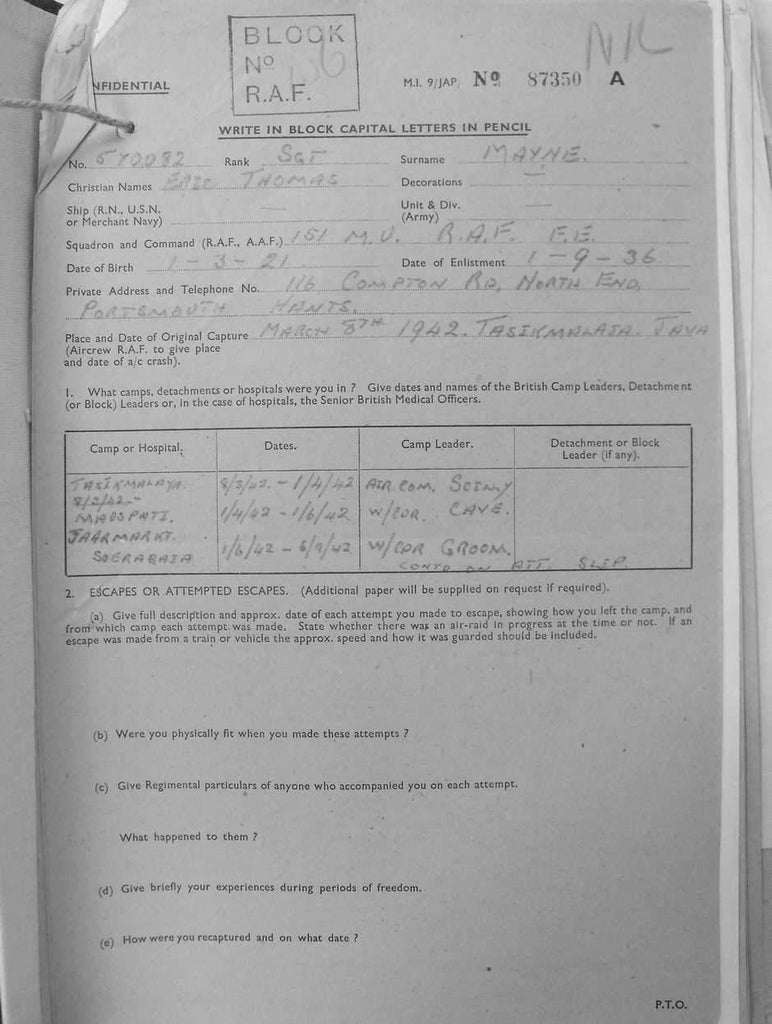 BLOCK
Nº
R.A.F.
NIL
NFIDENTIAL
M.I. 9/JAP. Nº 87350 A
WRITE IN BLOCK CAPITAL LETTERS IN PENCIL
No. 570082 Rank SGT Surname MAYNE.
Christian Names ERIC THOMAS Decorations —
Ship (R.N., U.S.N. or Merchant Navy) — Unit & Div. (Army) —
Squadron and Command (R.A.F., A.A.F.) 151 M.U. R.A.F. F.E.
Date of Birth 1-3-21 Date of Enlistment 1-9-36
Private Address and Telephone No. 116 COMPTON RD, NORTH END,
PORTSMOUTH HANTS.
Place and Date of Original Capture MARCH 8TH 1942. TASIKMALAJA. JAVA
(Aircrew R.A.F. to give place
and date of a/c crash).
1. What camps, detachments or hospitals were you in ? Give dates and names of the British Camp Leaders, Detachment
(or Block) Leaders or, in the case of hospitals, the Senior British Medical Officers.
Camp or Hospital. Dates. Camp Leader. Detachment or Block Leader (if any).
TASIKMALAYA. 8/3/42. - 1/4/42 AIR COM.
8/3/42.-
1/4/42 - 1/6/42 W/CDR. CAVE.
JAARMARKT.
SOERABAIA 1/6/42 - 6/9/42 W/CDR GROOM.
CONTD ON ATT. SLIP.
2. ESCAPES OR ATTEMPTED ESCAPES. (Additional paper will be supplied on request if required).
(a) Give full description and approx. date of each attempt you made to escape, showing how you left the camp, and
from which camp each attempt was made. State whether there was an air-raid in progress at the time or not. If an
escape was made from a train or vehicle the approx. speed and how it was guarded should be included.
(b) Were you physically fit when you made these attempts ?
(c) Give Regimental particulars of anyone who accompanied you on each attempt.
What happened to them ?
(d) Give briefly your experiences during periods of freedom.
(e) How were you recaptured and on what date ?
P.T.O.